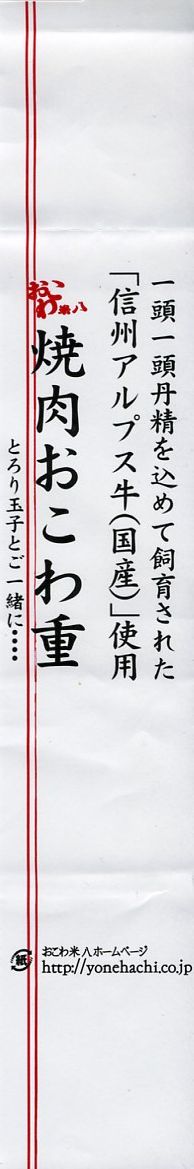 一頭一頭丹精を込めて飼育された
「信州アルプス牛(国産)」使用
おこわ米八
焼肉おこわ重
とろり玉子とご一緒に・・・・
紙
おこわ米八ホームページ
http://yonehachi.co.jp